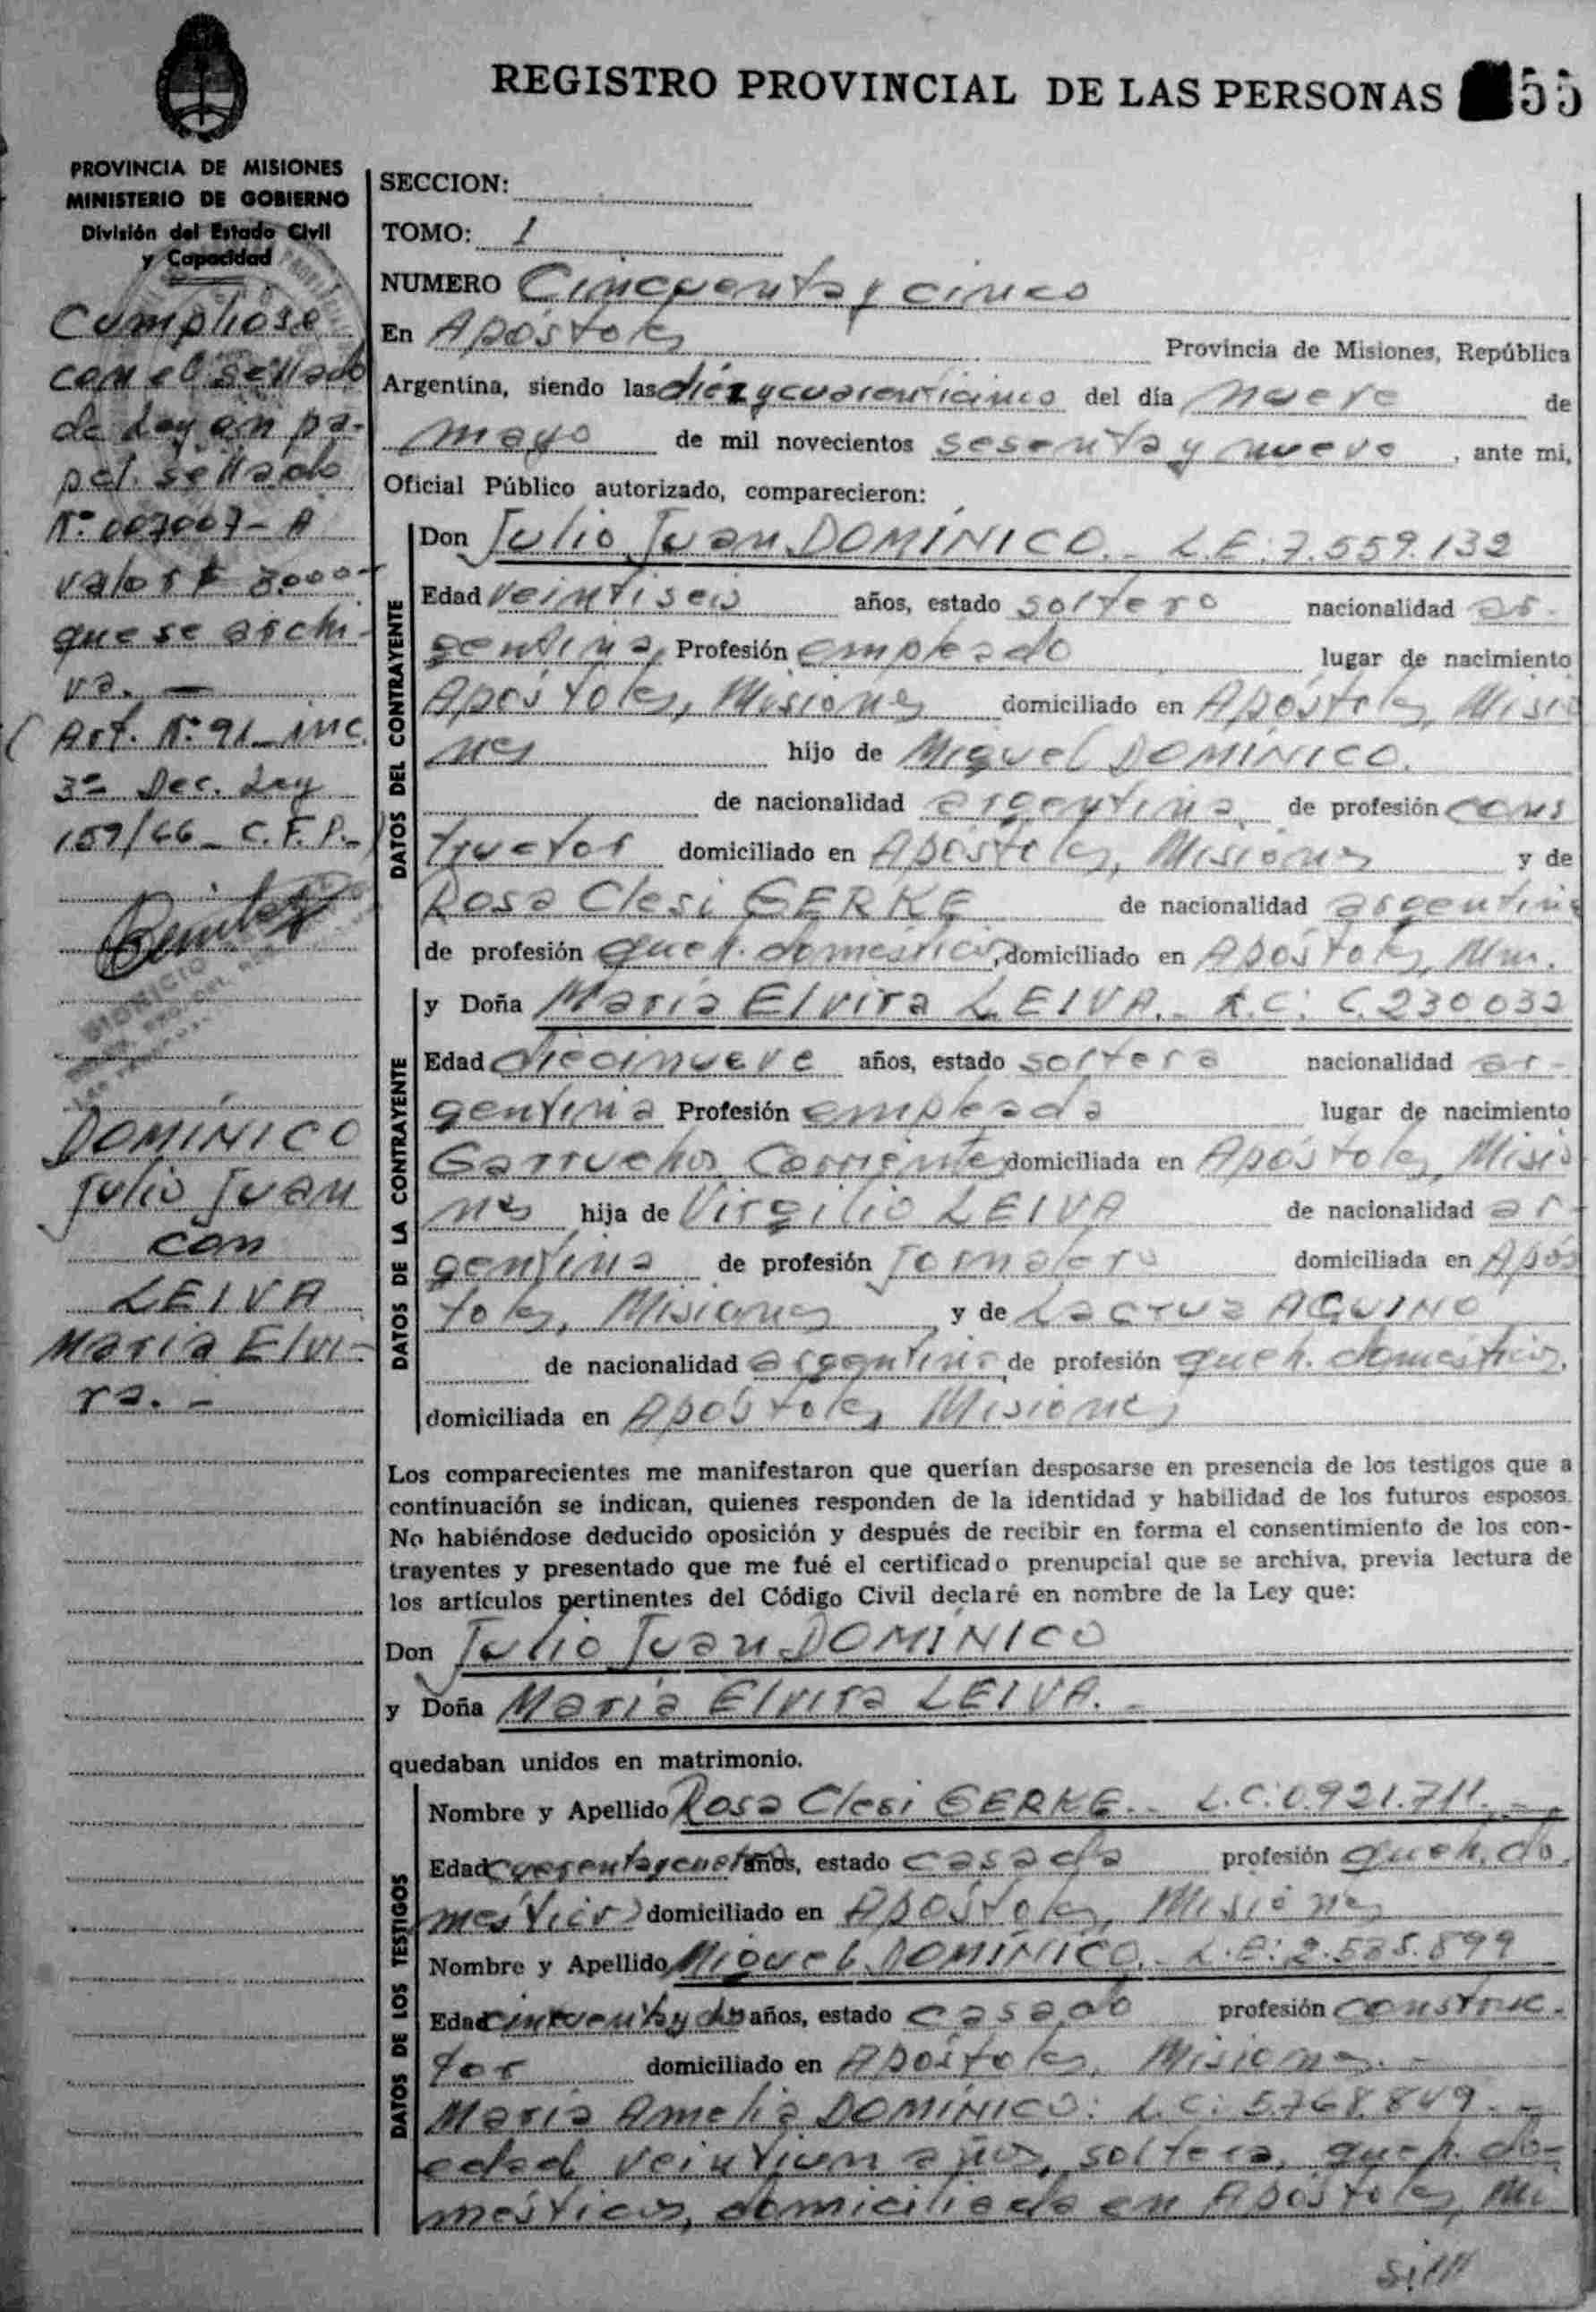 REGISTRO PROVINCIAL DE LAS PERSONAS 55
PROVINCIA DE MISIONES
MINISTERIO DE GOBIERNO
División del Estado Civil
y Capacidad
Cumpliose
con el sellado
de Ley en pa-
pel sellado
N° 007007-A
valor $ 3.000-
que se archi-
va. —
(Art. N° 91 inc.
3° Dec. Ley
159/66 - C.F.P.-)
DOMÍNICO
Julio Juan
con
LEIVA
María Elvi-
ra. -
SECCION:
TOMO: 1
NUMERO Cincuenta y cinco
En Apóstoles Provincia de Misiones, República
Argentina, siendo las diez y cuarenticinco del día nueve de
mayo de mil novecientos sesenta y nueve, ante mi,
Oficial Público autorizado, comparecieron:
DATOS DEL CONTRAYENTE
Don Julio Juan DOMÍNICO.- L.E: 7.559.132
Edad veintiseis años, estado soltero nacionalidad ar-
gentina, Profesión empleado lugar de nacimiento
Apóstoles, Misiones domiciliado en Apóstoles, Misio
nes hijo de Miguel DOMÍNICO.
de nacionalidad argentina, de profesión cons
tructor domiciliado en Apóstoles, Misiones y de
Rosa Clesi GERKE de nacionalidad argentina
de profesión queh. domésticos, domiciliado en Apóstoles, Mnes.
DATOS DE LA CONTRAYENTE
y Doña María Elvira LEIVA.- L.C: 6.230.032
Edad diecinueve años, estado soltera nacionalidad ar-
gentina Profesión empleada lugar de nacimiento
Garruchos Corrientes domiciliada en Apóstoles, Misio
nes hija de Virgilio LEIVA de nacionalidad ar-
gentina de profesión jornalero domiciliada en Após
toles, Misiones y de Lacruz AQUINO
de nacionalidad argentina de profesión queh. domésticos,
domiciliada en Apóstoles, Misiones
Los comparecientes me manifestaron que querían desposarse en presencia de los testigos que a
continuación se indican, quienes responden de la identidad y habilidad de los futuros esposos.
No habiéndose deducido oposición y después de recibir en forma el consentimiento de los con-
trayentes y presentado que me fué el certificado prenupcial que se archiva, previa lectura de
los artículos pertinentes del Código Civil declaré en nombre de la Ley que:
Don Julio Juan DOMÍNICO
y Doña María Elvira LEIVA.-
quedaban unidos en matrimonio.
DATOS DE LOS TESTIGOS
Nombre y Apellido Rosa Clesi GERKE.- L.C: 0.921.711.-
Edad años, estado casada profesión queh. do-
mésticos domiciliado en Apóstoles, Misiones
Nombre y Apellido Miguel DOMÍNICO.- L.E: 2.585.899
Edad cincuenta y dos años, estado casado profesión construc-
tor domiciliado en Apóstoles, Misiones.-
María Amelia DOMÍNICO: L.C: 5.768.849.-
edad veintiun años, soltera, queh. do-
mésticos, domiciliada en Apóstoles, Mi